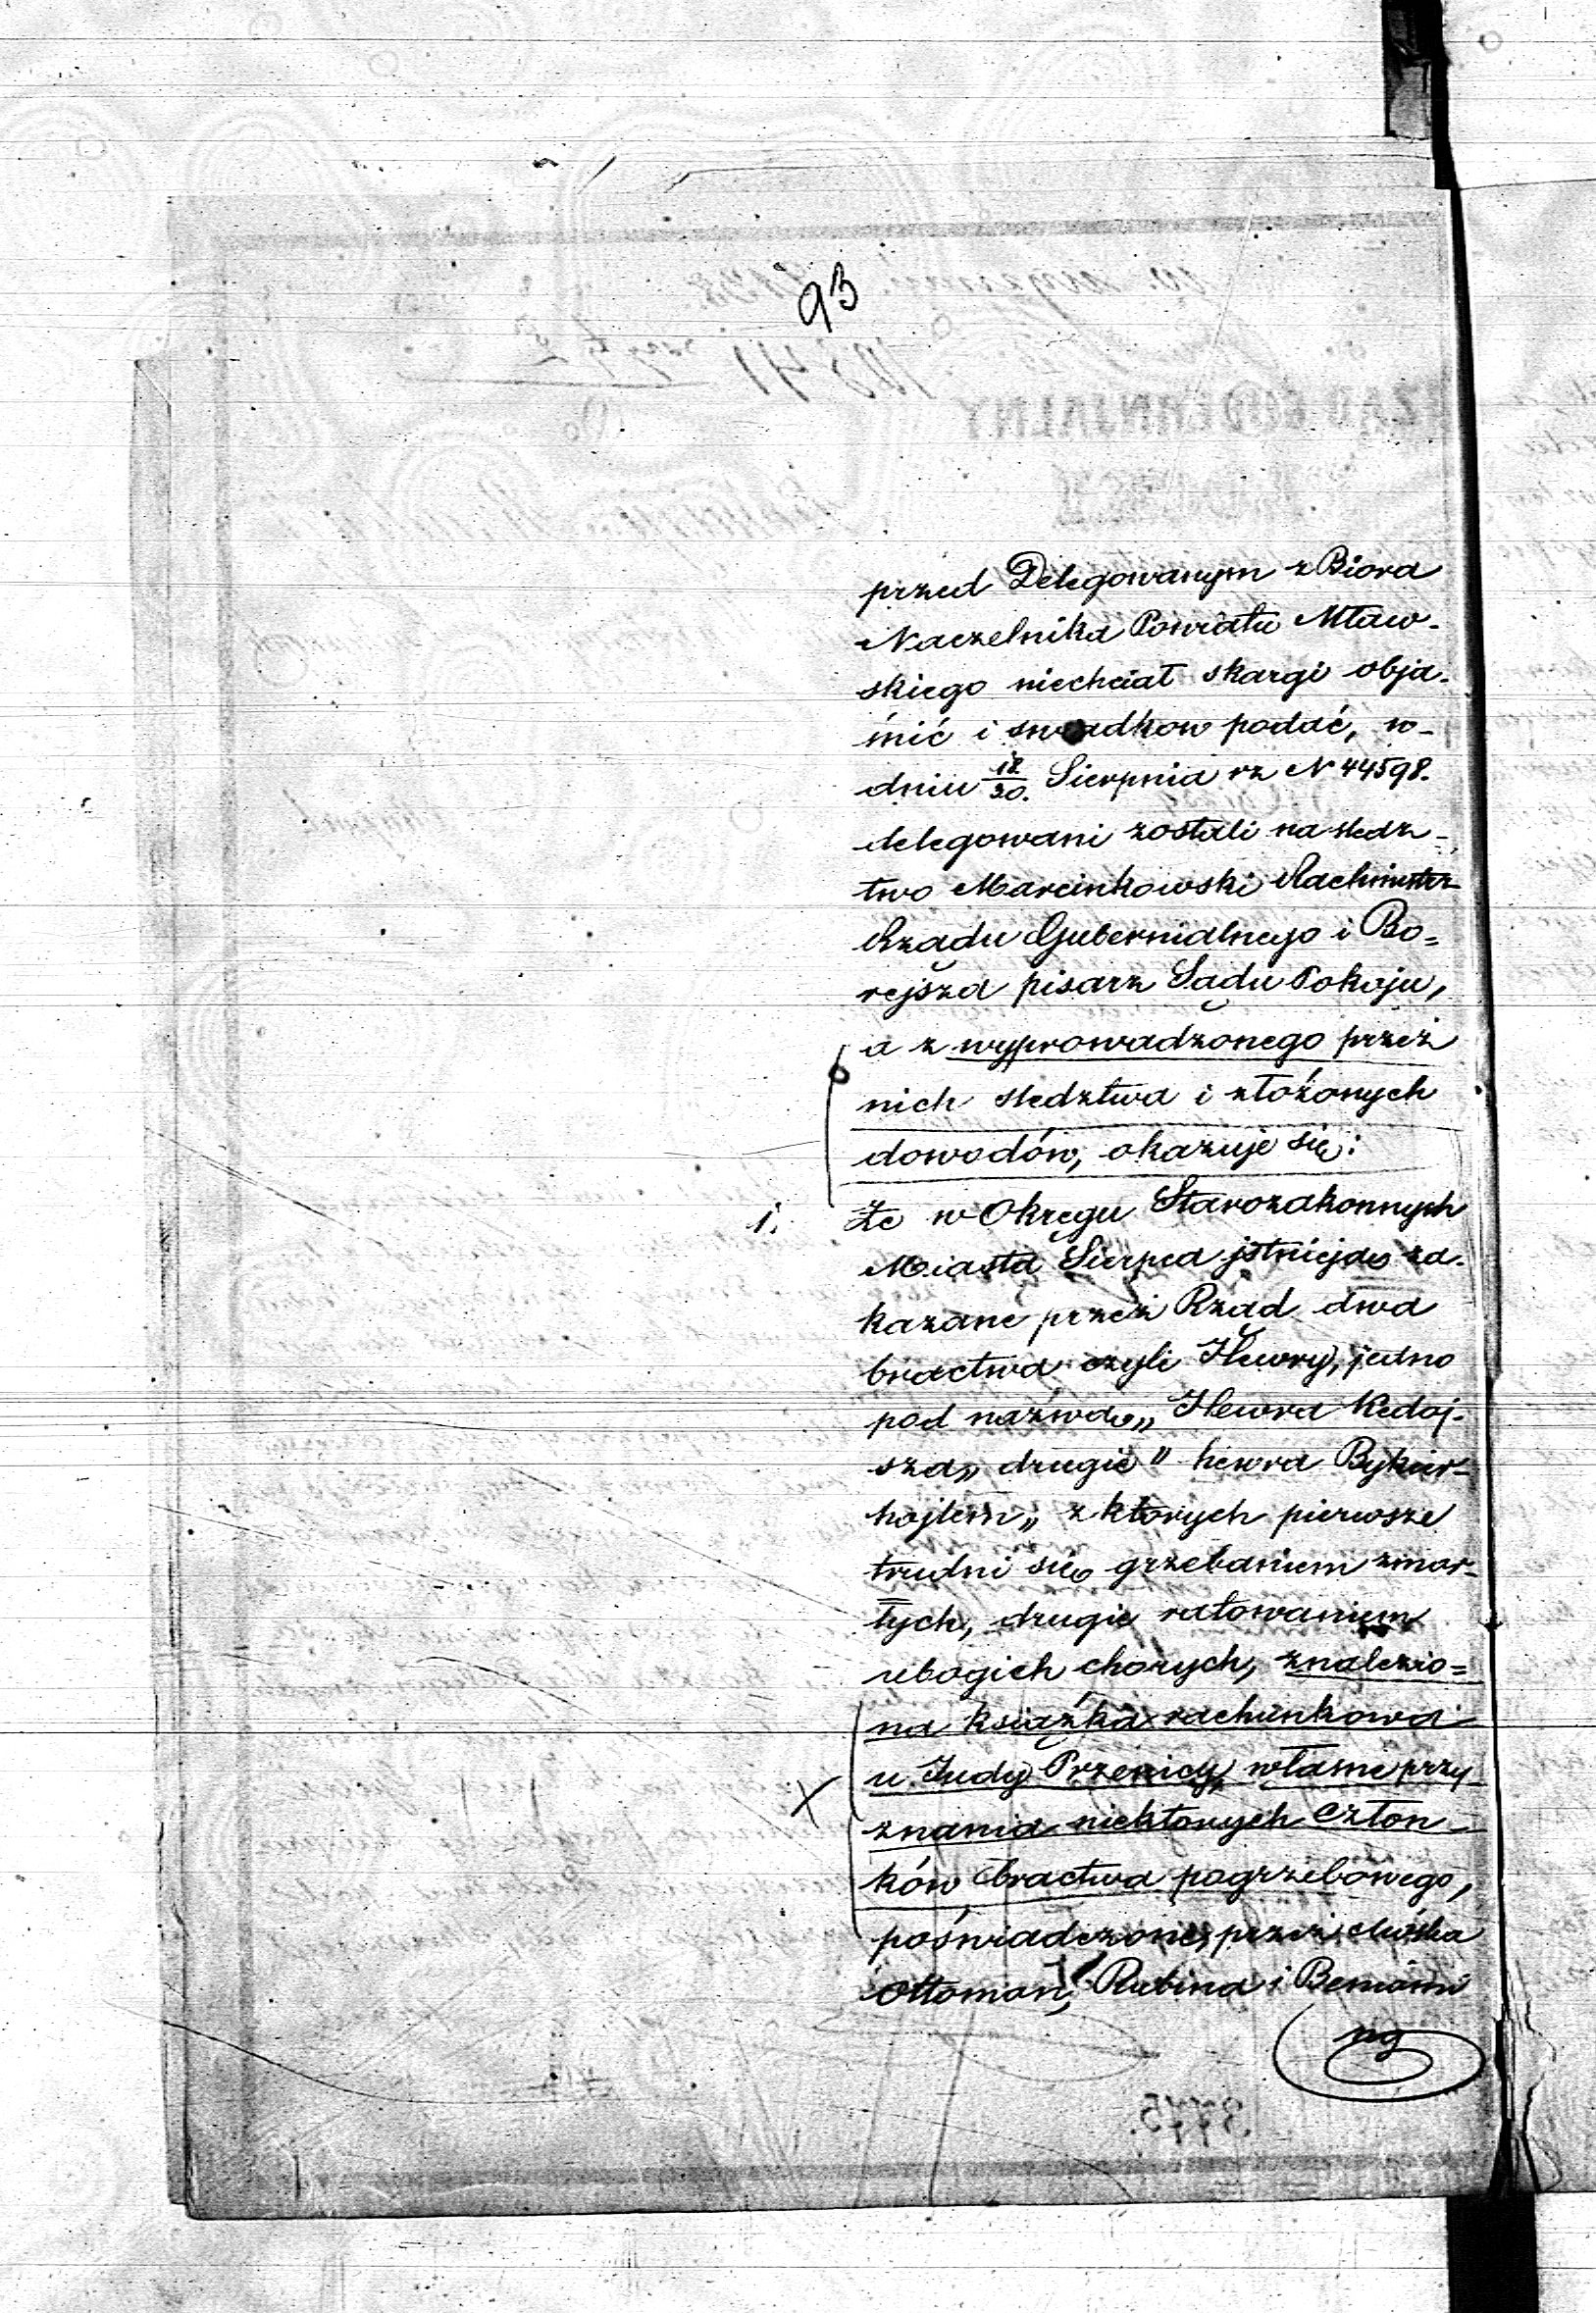 93
przed Delegowanym z Biora
Naczelnika Powiatu Mław-
skiego niechciał skargi obja-
śnić i swiadkow podać, w-
dniu 18/30. Sierpnia rz N 44598.
delegowani zostali na sledz-
two Marcinkowski Rachmistrz
Rządu Gubernialnego i Bo=
rejsza pisarz Sądu Pokoju,
a z wyprowadzonego przez
nich sledztwa i złożonych
dowodów, okazuje się:
1. że w Okręgu Starozakonnych
Miasta Sierpca jstnieją za-
kazane przez Rząd dwa
bractwa czyli Hewry, jedno
pod nazwą „Hewra Kedoj-
sza„ drugie " hewra Bykur-
hojlem„ z ktorych pierwsze
trudni się grzebaniem zmar-
łych, drugie ratowaniem
ubogich chorych, znalezio=
na książka rachunkowa
u Judy Przenicy, własne przy
X
znania niektorych Człon-
ków bractwa pogrzebowego,
poświadczone, przez
Ottoman, Rubina i Beniami
ng